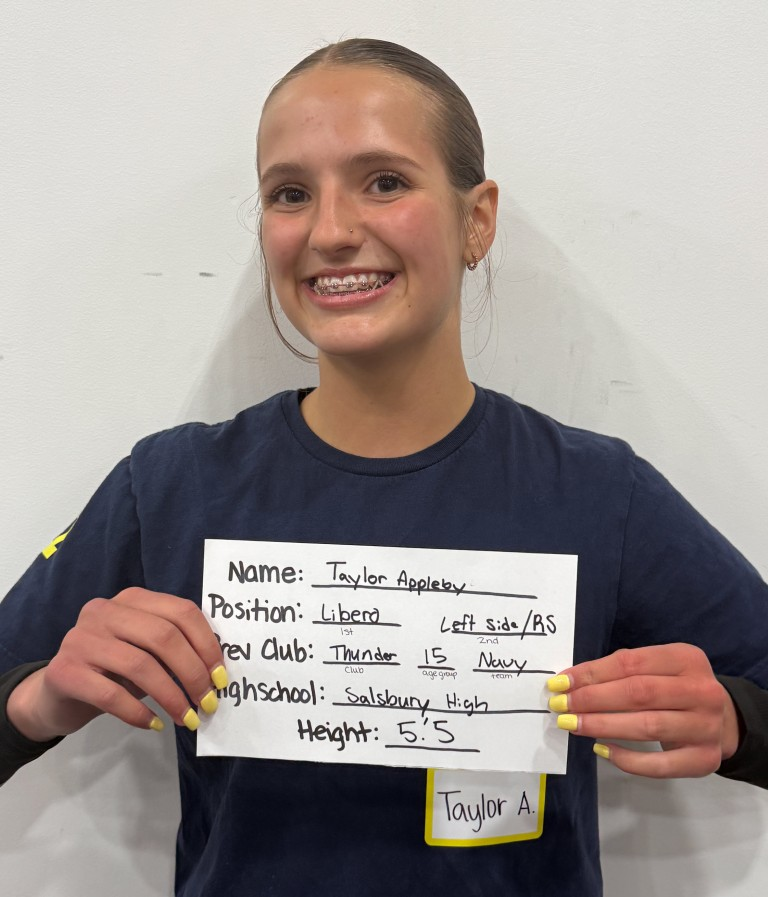 Name: Taylor Appleby
Position: Libero Left side/RS
1st 2nd
rev Club: Thunder 15 Navy
club age group team
ighschool: Salsbury High
Height: 5'.5
Taylor A.